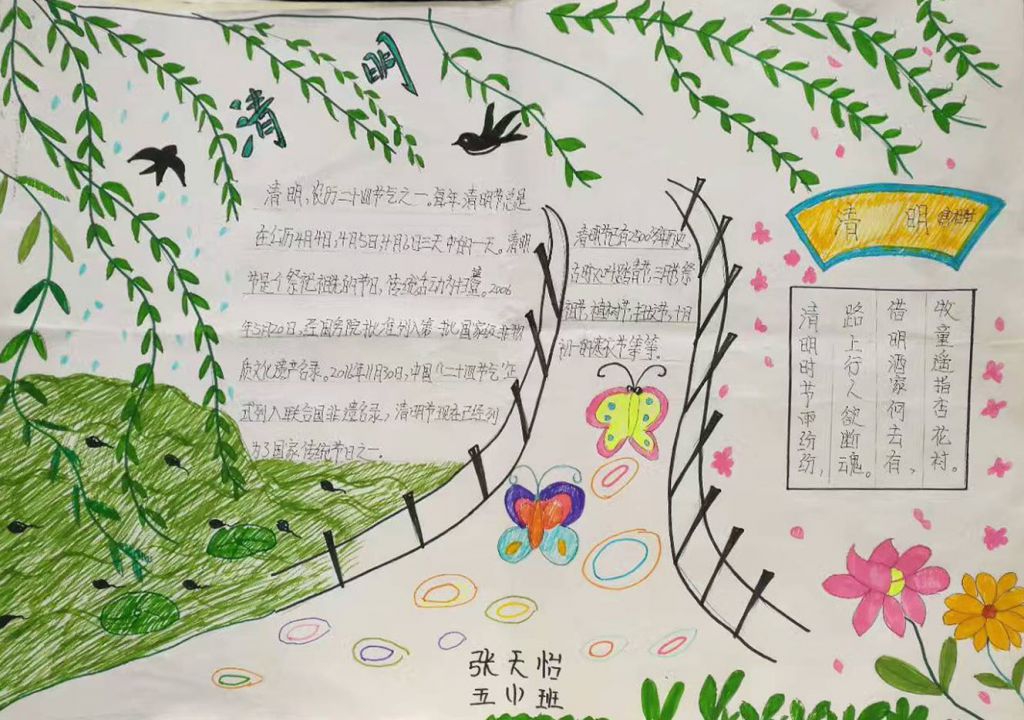 清明
清明，农历二十四节气之一。每年，清明节总是
在公历4月4日，4月5日4月6日三天中的一天。清明
节是个祭祀祖先的节日，传统活动为扫墓。2006
年5月20日，经国务院批准列入第一批国家级非物
质文化遗产名录。2016年11月30日，中国"二十四节气"正
式列入联合国非遗名录，清明节现在已经列
为了国家传统节日之一.
清明节已有2500多年历史，
节，植树节，扫
初一的寒衣节等等.
清 明
清明时节雨纷纷，
路上行人欲断魂。
借明酒家何去有，
牧童遥指杏花村。
张天怡
五(1)班